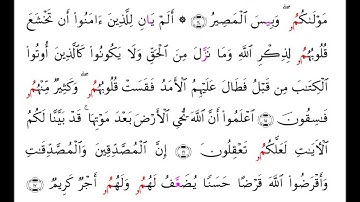 مَوْلَىٰكُمُۥ ۖ وَبِيسَ ٱلْمَصِيرُ ۞ أَلَمْ يَانِ لِلَّذِينَ ءَامَنُوا۟ أَن تَخْشَعَ
قُلُوبُهُمُۥ لِذِكْرِ ٱللَّهِ وَمَا نَزَّلَ مِنَ ٱلْحَقِّ وَلَا يَكُونُوا۟ كَٱلَّذِينَ أُوتُوا۟
ٱلْكِتَـٰبَ مِن قَبْلُ فَطَالَ عَلَيْهِمُ ٱلْأَمَدُ فَقَسَتْ قُلُوبُهُمُۥ ۖ وَكَثِيرٌ مِّنْهُمُۥ
فَـٰسِقُونَ ٱعْلَمُوٓا۟ أَنَّ ٱللَّهَ يُحْىِ ٱلْأَرْضَ بَعْدَ مَوْتِهَا ۚ قَدْ بَيَّنَّا لَكُمُ
ٱلْـَٔايَـٰتِ لَعَلَّكُمُۥ تَعْقِلُونَ إِنَّ ٱلْمُصَّدِّقِينَ وَٱلْمُصَّدِّقَـٰتِ
وَأَقْرَضُوا۟ ٱللَّهَ قَرْضًا حَسَنًا يُضَعَّفُ لَهُمُۥ وَلَهُمُۥ أَجْرٌ كَرِيمٌ